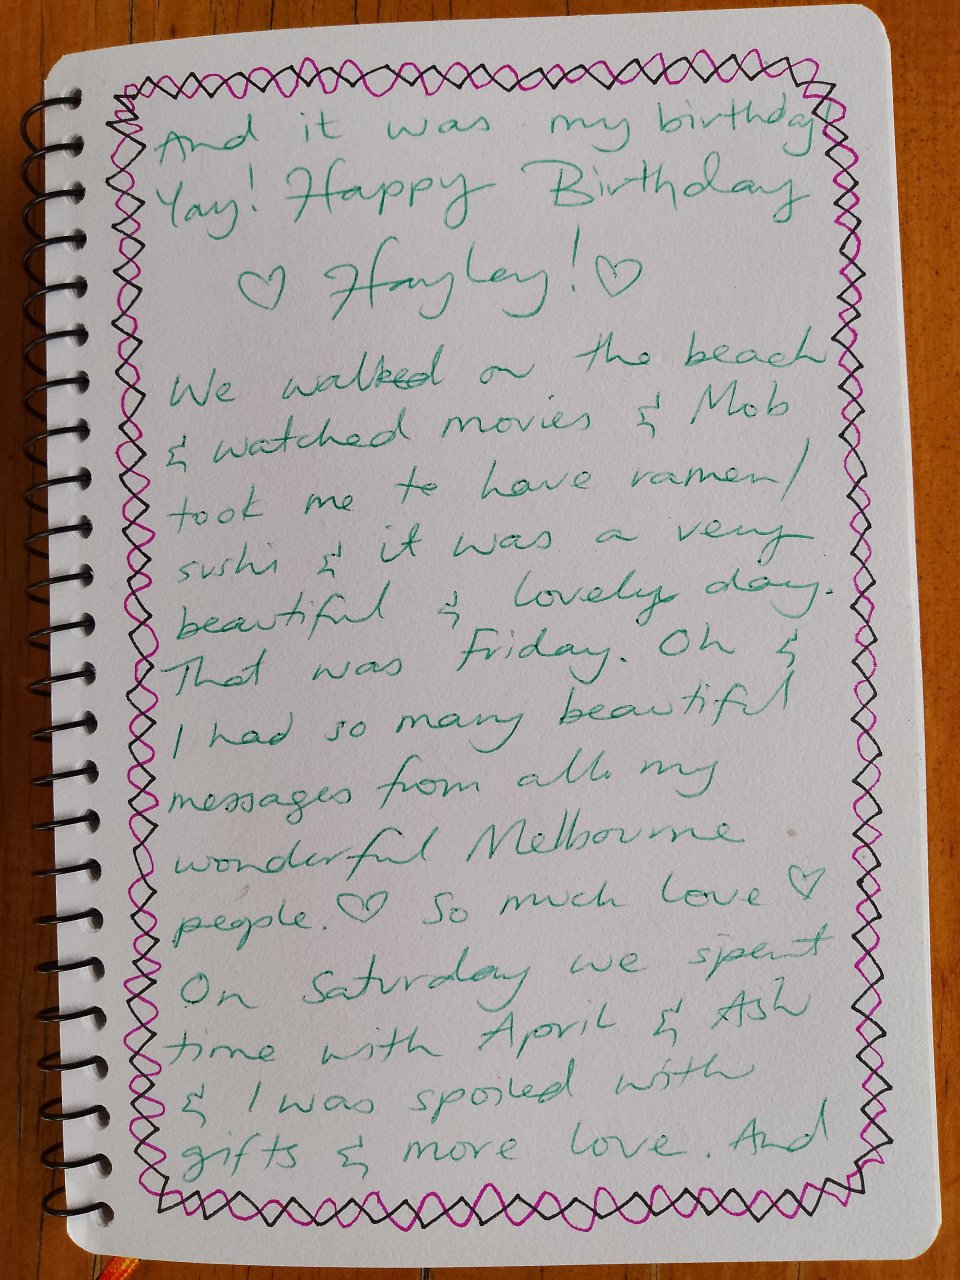 And it was my birthday!
Yay! Happy Birthday
♡ Hayley! ♡
We walked on the beach
& watched movies & Mob
took me to have ramen/
sushi & it was a very
beautiful & lovely day.
That was Friday. Oh &
I had so many beautiful
messages from all my
wonderful Melbourne
people. ♡ So much love ♡
On Saturday we spent
time with April & Ash
& I was spoiled with
gifts & more love. And